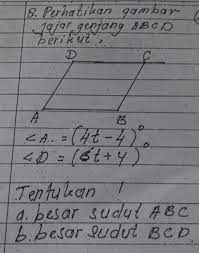 8. Perhatikan gambar
jajar genjang ABCD
berikut.
D C
A B
<A. = (4t-4)°
<D = (5t+4)°
Tentukan !
a. besar sudut ABC
b. besar sudut BCD